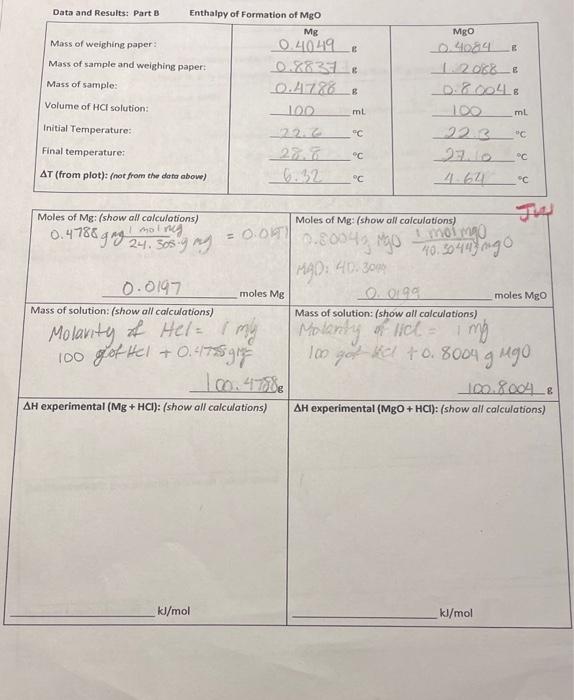 Data and Results: Part B Enthalpy of Formation of MgO
Mg MgO
Mass of weighing paper: 0.4049 g 0.4084 g
Mass of sample and weighing paper: 0.8837 g 1.2088 g
Mass of sample: 0.4788 g 0.8004 g
Volume of HCl solution: 100 mL 100 mL
Initial Temperature: 22.6 °C 22.3 °C
Final temperature: 28.8 °C 27.10 °C
ΔT (from plot): (not from the data above) 6.32 °C 4.64 °C
Moles of Mg: (show all calculations)
0.4788 g mg 1 mol mg = 0.0197
24.305 g mg
0.0197 moles Mg
Moles of Mg: (show all calculations)
0.8004g MgO 1 mol mgO
40.3044g mgO
MgO: 40.3044
0.0199 moles MgO
Mass of solution: (show all calculations)
Molarity of HCl = 1 
100 g of HCl + 0.4788g
100.4788g
Mass of solution: (show all calculations)
Molarity of HCl = 1 
100 g of HCl + 0.8004 g MgO
100.8004 g
ΔH experimental (Mg + HCl): (show all calculations)
kJ/mol
ΔH experimental (MgO + HCl): (show all calculations)
kJ/mol